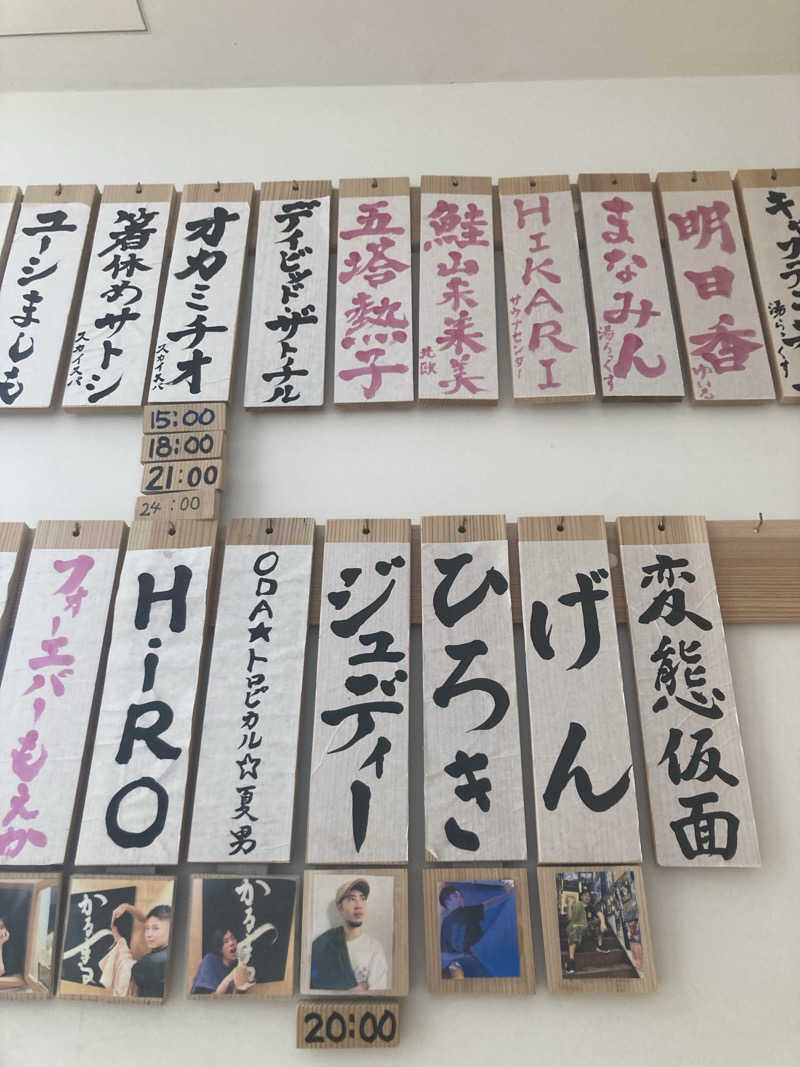 ユーシましも
箸休めサトシ
スカイスパ
オカミチオ
スカイスパ
デイビッド・ザトナル
五塔熱子
鮭山未来美
北欧
HIKARI
サウナセンター
まなみん
湯らっくす
明日香
ゆいる
湯らっくす
15:00
18:00
21:00
24:00
フォーエバーもえか
HiRO
ODA★トロピカル☆夏男
ジュディー
ひろき
げん
変態仮面
かるまる
かるまる
20:00